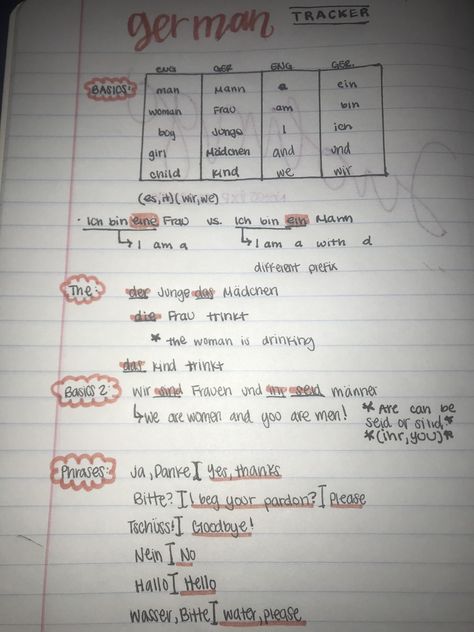 german TRACKER
ENG GER ENG GER.
BASICS: man Mann a ein
woman Frau am bin
boy Junge I ich
girl Mädchen and und
child Kind we wir
(es,it)(wir,we)
· Ich bin eine Frau vs. Ich bin ein Mann
I am a I am a with a
different prefix
The: der Junge das Mädchen
die Frau trinkt
* the woman is drinking
das Kind trinkt
Basics 2: wir sind Frauen und ihr seid männer
we are women and you are men! *Are can be
seid or sind*
*(ihr,you)*
Phrases: Ja, Danke I Yes, thanks
Bitte? I I beg your pardon? I Please
Tschüss! I Goodbye!
Nein I No
Hallo I Hello
Wasser, Bitte I water, please